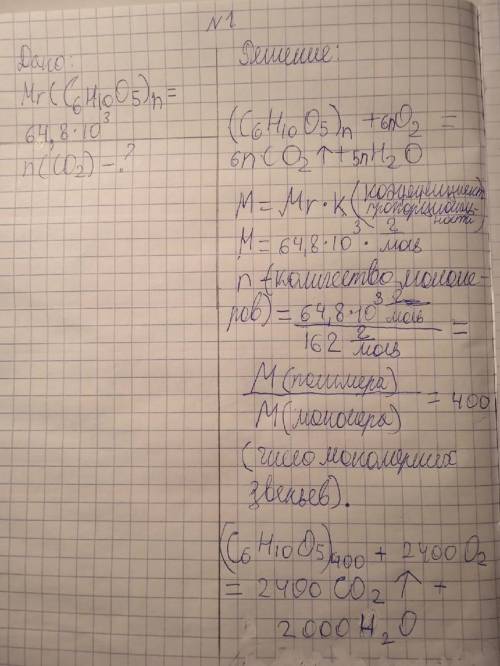 №1
Дано:
Mr(C6H10O5)n =
64,8·10³
n(CO2) – ?
Решение:
(C6H10O5)n + 6nO2 =
6nCO2↑ + 5nH2O
M = Mr·k (коэффициент
пропорциональ-
ности)
M = 64,8·10³ · г/моль
n (количество мономе-
ров) = 64,8·10³ г/моль / 162 г/моль =
M(полимера) / M(мономера) = 400
(число мономерных
звеньев).
(C6H10O5)400 + 2400 O2
= 2400 CO2↑ +
2000 H2O